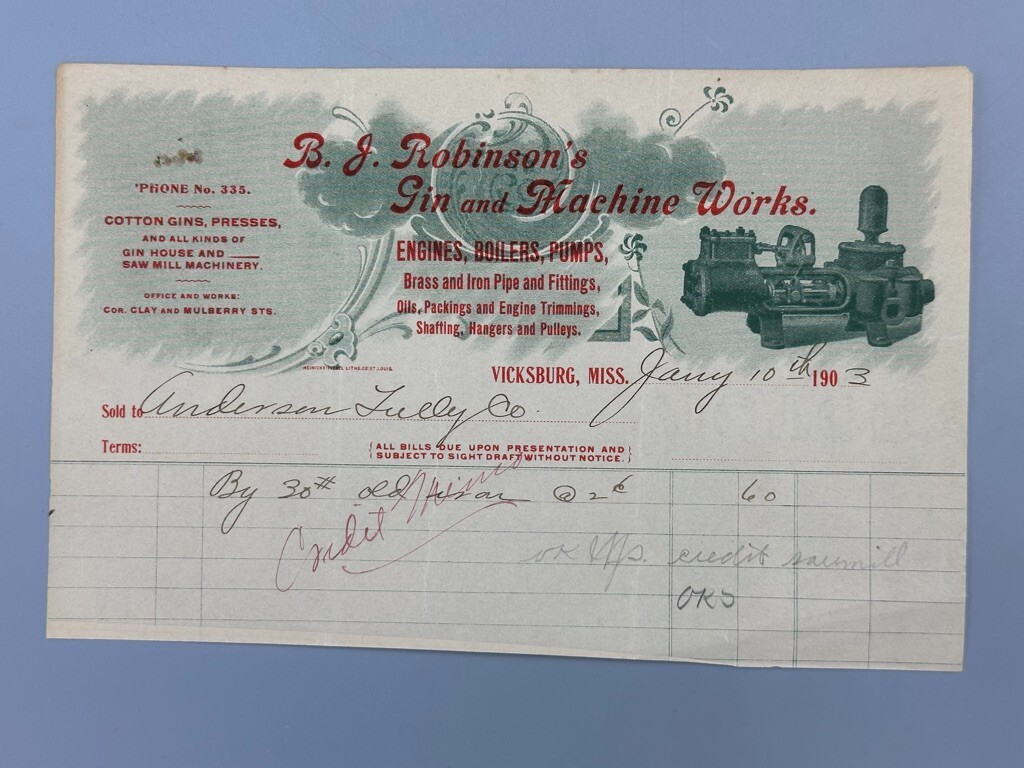 B. J. Robinson's
Gin and Machine Works.
'PHONE No. 335.
COTTON GINS, PRESSES,
AND ALL KINDS OF
GIN HOUSE AND
SAW MILL MACHINERY.
OFFICE AND WORKS:
COR. CLAY AND MULBERRY STS.
ENGINES, BOILERS, PUMPS,
Brass and Iron Pipe and Fittings,
Oils, Packings and Engine Trimmings,
Shafting, Hangers and Pulleys.
VICKSBURG, MISS. Jany 10th 1903
Sold to Anderson Tully Co.
Terms:
ALL BILLS DUE UPON PRESENTATION AND
SUBJECT TO SIGHT DRAFT WITHOUT NOTICE.
By 30# old iron @ 2¢ 60
Credit Memo
OK credit sawmill